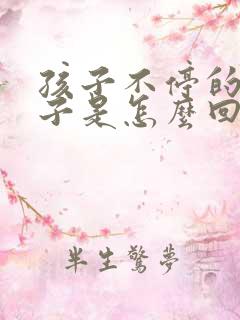 孩子不停的
子是怎麼回
半生驚夢